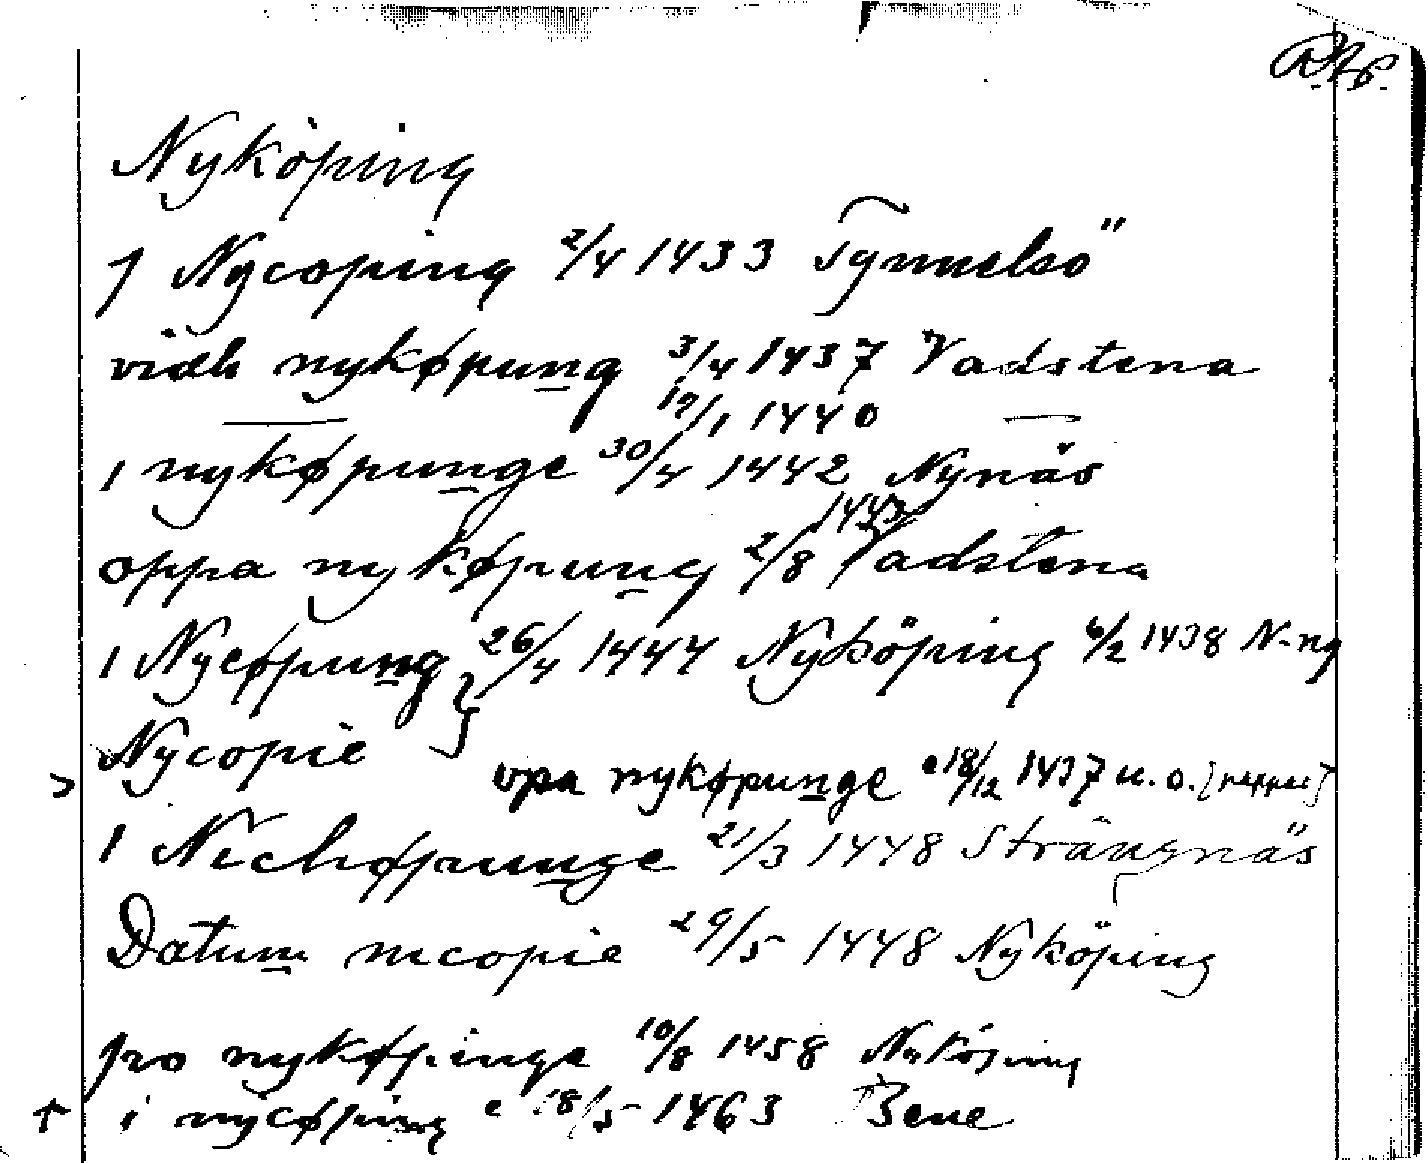 Nyköping
J Nycoping 2/4 1433 Tynnelsö
vidh nykøpung 3/4 1437 Vadstena
— 19/1 1440 —
i nykøpunge 30/4 1442 Nynäs
oppa nykøpung 2/8 1443 Vadstena
i Nycøpung } 26/4 1444 Nyköping 6/2 1438 N-ng
Nycopie
opa nykøpunge e 18/12 1437 u. o. [pappers]
i Nechøpunge 21/3 1448 Strängnäs
Datum nicopie 29/5 1448 Nyköping
pro nykøpinge 10/8 1458 Nyköping
i nycøping e 18/5 1463 Bene